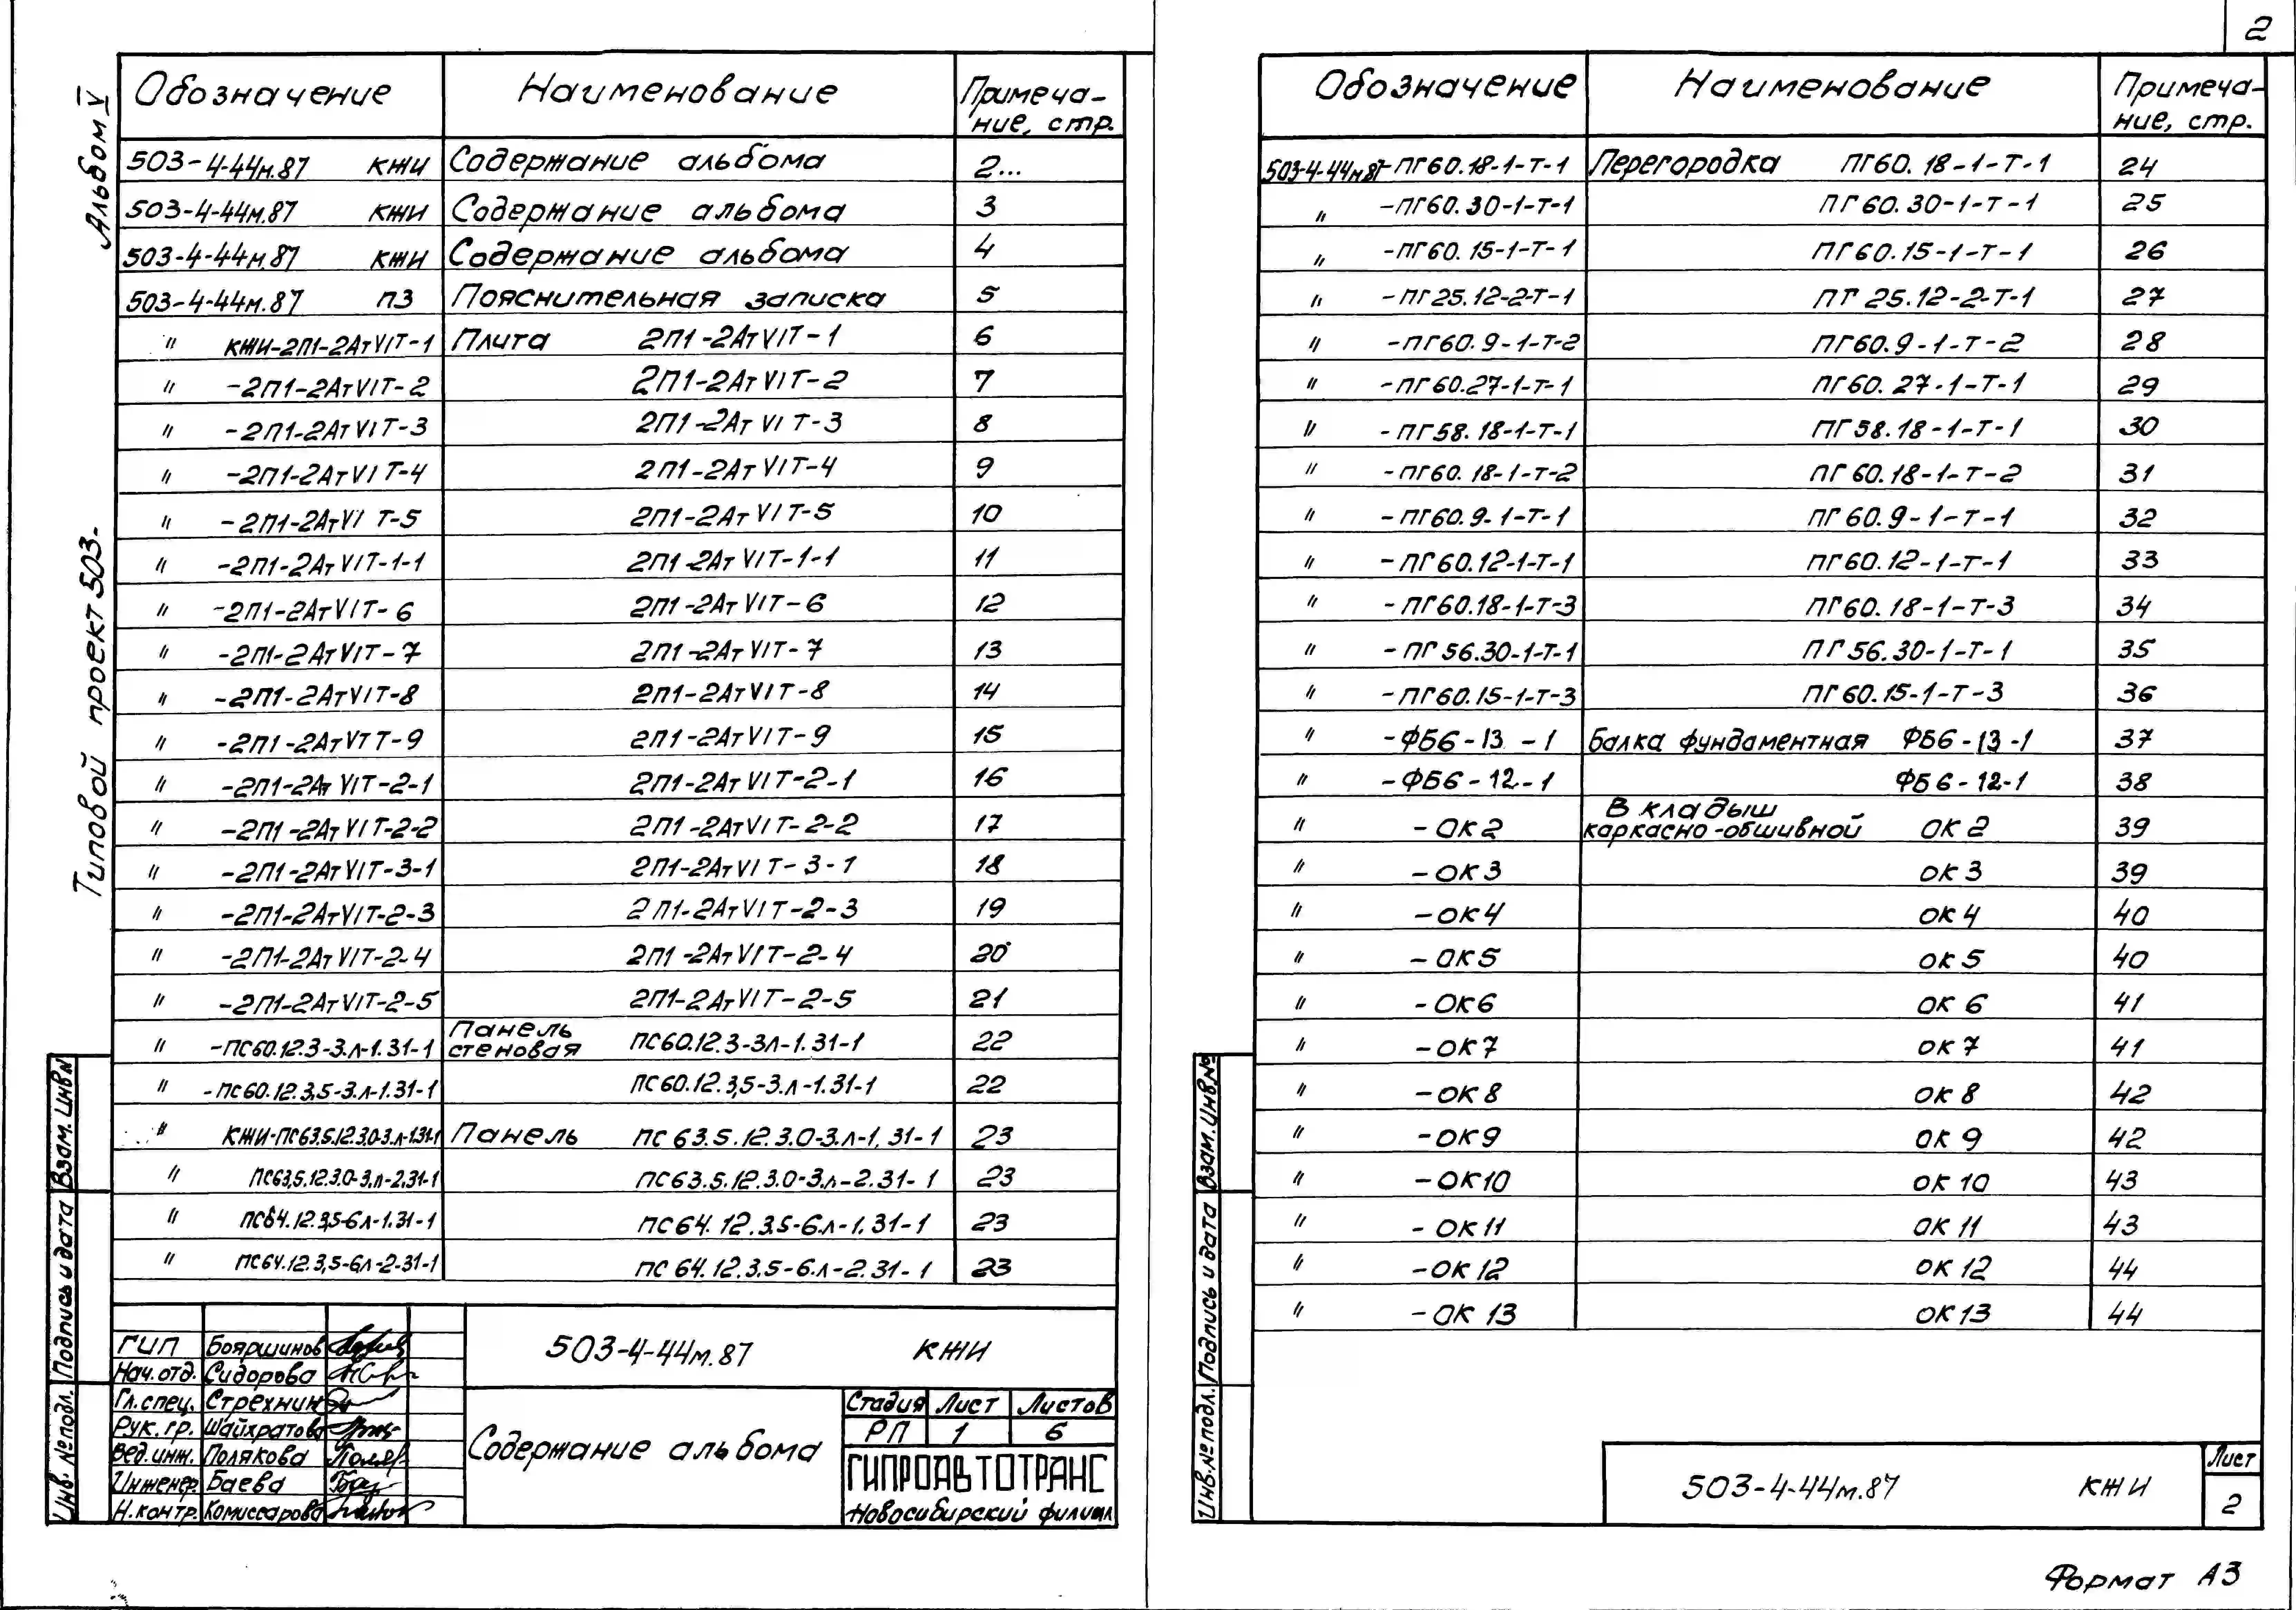 2
Альбом V
Типовой проект 503-
Обозначение Наименование Примеча-
ние, стр.
503-4-44м.87 КЖИ Содержание альбома 2...
503-4-44м.87 КЖИ Содержание альбома 3
503-4-44м.87 КЖИ Содержание альбома 4
503-4-44м.87 ПЗ Пояснительная записка 5
" КЖИ-2П1-2АтVIТ-1 Плита 2П1-2АтVIТ-1 6
" -2П1-2АтVIТ-2 2П1-2АтVIТ-2 7
" -2П1-2АтVIТ-3 2П1-2АтVIТ-3 8
" -2П1-2АтVIТ-4 2П1-2АтVIТ-4 9
" -2П1-2АтVIТ-5 2П1-2АтVIТ-5 10
" -2П1-2АтVIТ-1-1 2П1-2АтVIТ-1-1 11
" -2П1-2АтVIТ-6 2П1-2АтVIТ-6 12
" -2П1-2АтVIТ-7 2П1-2АтVIТ-7 13
" -2П1-2АтVIТ-8 2П1-2АтVIТ-8 14
" -2П1-2АтVIТ-9 2П1-2АтVIТ-9 15
" -2П1-2АтVIТ-2-1 2П1-2АтVIТ-2-1 16
" -2П1-2АтVIТ-2-2 2П1-2АтVIТ-2-2 17
" -2П1-2АтVIТ-3-1 2П1-2АтVIТ-3-1 18
" -2П1-2АтVIТ-2-3 2П1-2АтVIТ-2-3 19
" -2П1-2АтVIТ-2-4 2П1-2АтVIТ-2-4 20
" -2П1-2АтVIТ-2-5 2П1-2АтVIТ-2-5 21
" -ПС60.12.3-3.л-1.31-1 Панель стеновая ПС60.12.3-3л-1.31-1 22
" -ПС60.12.3,5-3.л-1.31-1 ПС60.12.3,5-3.л-1.31-1 22
" КЖИ-ПС63,5.12.3.0-3.л-1.31-1 Панель ПС63.5.12.3.0-3.л-1.31-1 23
" ПС63,5.12.3.0-3.л-2.31-1 ПС63.5.12.3.0-3.л-2.31-1 23
" ПС64.12.3,5-6л-1.31-1 ПС64.12.3,5-6.л-1.31-1 23
" ПС64.12.3,5-6л-2-31-1 ПС64.12.3.5-6.л-2.31-1 23
ГИП Бояршинов
Нач.отд. Сидорова
Гл.спец. Стрехнин
Рук. гр. Шайхратова
Вед.инж. Полякова
Инженер Баева
Н.контр. Комиссарова
503-4-44м.87 КЖИ
Содержание альбома
Стадия Лист Листов
РП 1 6
ГИПРОАВТОТРАНС
Новосибирский филиал
Взам. Инв№
Подпись и дата
Инв. № подл.
Обозначение Наименование Примеча-
ние, стр.
503-4-44м.87-ПГ60.18-1-Т-1 Перегородка ПГ60.18-1-Т-1 24
" -ПГ60.30-1-Т-1 ПГ60.30-1-Т-1 25
" -ПГ60.15-1-Т-1 ПГ60.15-1-Т-1 26
" -ПГ25.12-2-Т-1 ПГ25.12-2-Т-1 27
" -ПГ60.9-1-Т-2 ПГ60.9-1-Т-2 28
" -ПГ60.27-1-Т-1 ПГ60.27-1-Т-1 29
" -ПГ58.18-1-Т-1 ПГ58.18-1-Т-1 30
" -ПГ60.18-1-Т-2 ПГ60.18-1-Т-2 31
" -ПГ60.9-1-Т-1 ПГ60.9-1-Т-1 32
" -ПГ60.12-1-Т-1 ПГ60.12-1-Т-1 33
" -ПГ60.18-1-Т-3 ПГ60.18-1-Т-3 34
" -ПГ56.30-1-Т-1 ПГ56.30-1-Т-1 35
" -ПГ60.15-1-Т-3 ПГ60.15-1-Т-3 36
" -ФБ6-13-1 Балка фундаментная ФБ6-13-1 37
" -ФБ6-12-1 ФБ6-12-1 38
" -ОК2 Вкладыш каркасно-обшивной ОК2 39
" -ОК3 ОК3 39
" -ОК4 ОК4 40
" -ОК5 ОК5 40
" -ОК6 ОК6 41
" -ОК7 ОК7 41
" -ОК8 ОК8 42
" -ОК9 ОК9 42
" -ОК10 ОК10 43
" -ОК11 ОК11 43
" -ОК12 ОК12 44
" -ОК13 ОК13 44
Взам. Инв.№
Подпись и дата
Инв.№ подл.
503-4-44м.87 КЖИ
Лист
2
Формат А3